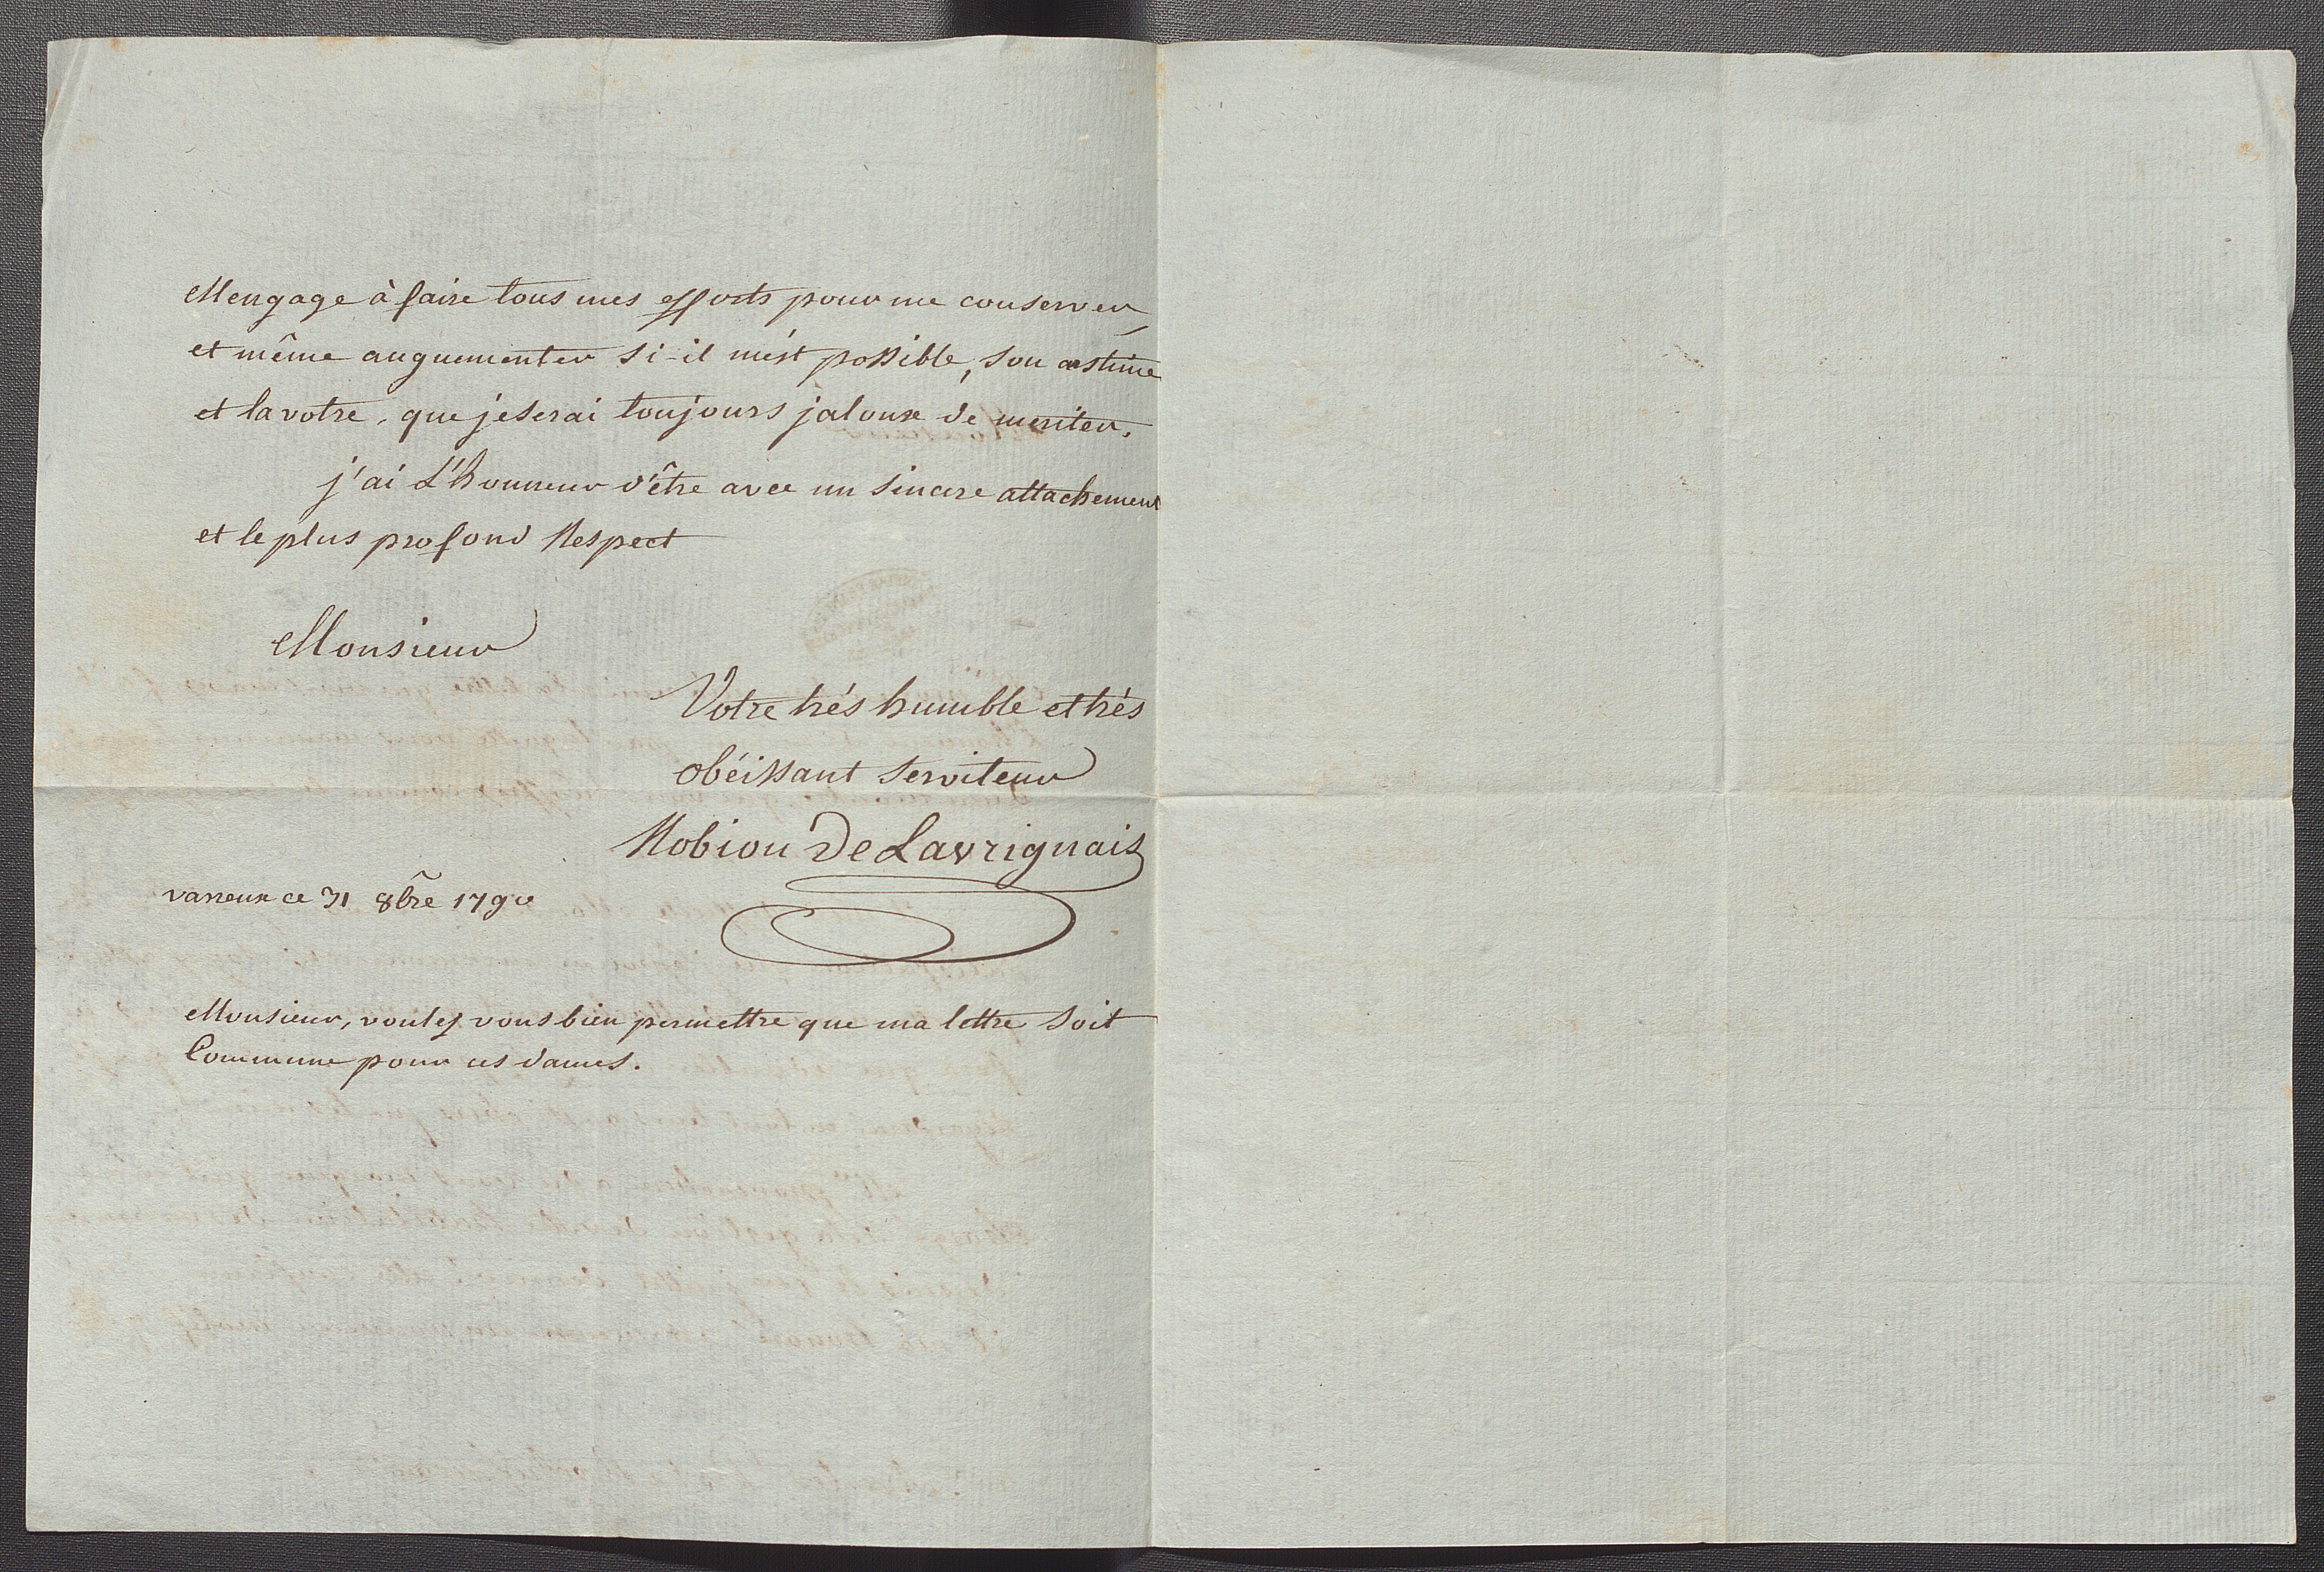 Mengage à faire tous mes efforts pour me conserver,
et même auguementer si-il m'est possible, son estime
et la votre, que je serai toujours jaloux de meriter.
j'ai L'honneur d'être avec un sincere attachement
et le plus profond Respect
Monsieur
Votre trés humble et trés
obéissant serviteur
Robiou De Lavrignais
varreux ce 31 8bre 1790
Monsieur, voulez vous bien permettre que ma lettre soit
Commune pour ces dames.